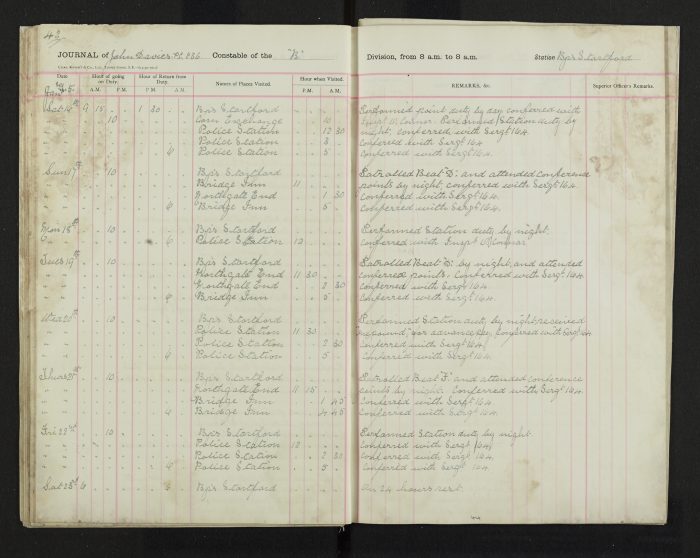 43
JOURNAL of John Davies P.C. 836 Constable of the "B" Division, from 8 a.m. to 8 a.m. Station Bp's Stortford
Date Hour of going on Duty. Hour of Return from Duty. Names of Places Visited. Hour when Visited. REMARKS, &c. Superior Officer's Remarks.
A.M. P.M. P.M. A.M. P.M. A.M.
Sat 16th 9 15 1 30 Bp's Stortford Performed point duty by day conferred with
" " 10 Corn Exchange 10 Corner. Performed Station duty by
" " Police Station 12 30 night, conferred with Sergt 164.
" " Police Station 3 Conferred with Sergt 164.
" " 6 Police Station 5 Conferred with Sergt 164.
Sun 17th 10 Bp's Stortford Patrolled Beat D: and attended conference
" " Bridge Inn 11 points by night, conferred with Sergt 164.
" " Northgate End 1 30 Conferred with Sergt 164.
" " 6 Bridge Inn 5 Conferred with Sergt 164.
Mon 18th 10 Bp's Stortford Performed Station duty by night.
" " 6 Police Station 12 Conferred with Inspr
Tues 19th 10 Bp's Stortford Patrolled Beat D: by night, and attended
" " Northgate End 11 30 conferred points. Conferred with Sergt 164.
" " Northgate End 2 30 Conferred with Sergt 164.
" " 6 Bridge Inn 5 Conferred with Sergt 164.
Wed 20th 10 Bp's Stortford Performed Station duty by night, received
" " Police Station 11 30 conferred with Sergt 164.
" " Police Station 2 30 Conferred with Sergt 164.
" " 6 Police Station 5 Conferred with Sergt 164.
Thurs 21st 10 Bp's Stortford Patrolled Beat F: and attended conference
" " Northgate End 11 15 points by night. Conferred with Sergt 164.
" " Bridge Inn 1 45 Conferred with Sergt 164.
" " 6 Bridge Inn 4 45 Conferred with Sergt 164.
Fri 22nd 10 Bp's Stortford Performed Station duty by night.
" " Police Station 12 Conferred with Sergt 164.
" " Police Station 2 30 Conferred with Sergt 164.
" " 6 Police Station 5 Conferred with Sergt 164.
Sat 23rd 6 Bp's Stortford On 24 hours rest.
44